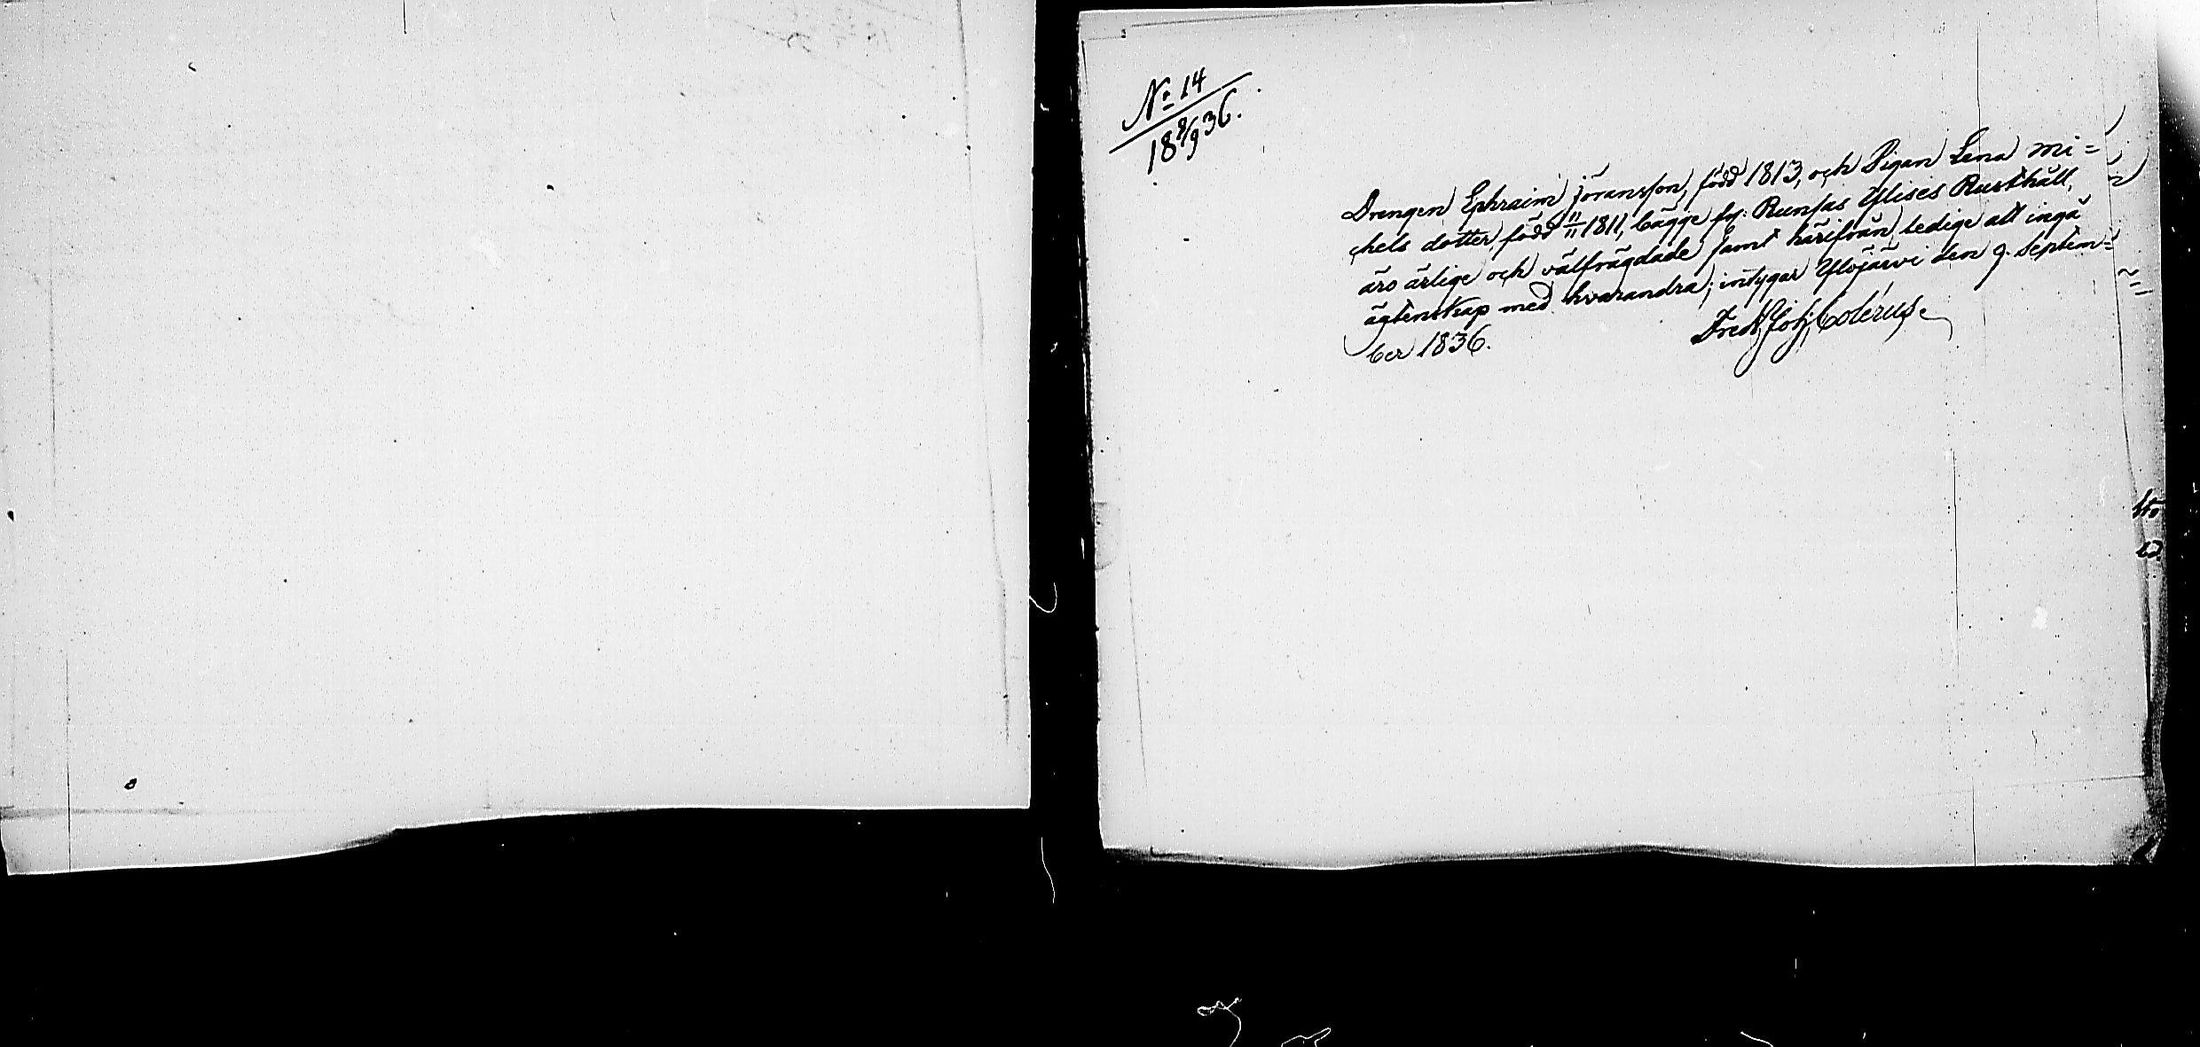 No 14
18 9/9 36.
Drengen Ephraim Jöransson, född 1813, och Pigan Lena Mi=
chels dotter, född 11/11 1811, bägge fr: Runsas Ylises Rusthåll,
äro ärlige och välfrägdade samt härifrån ledige att ingå
ägtenskap med hvarandra; intygar Ylöjärvi den 9. Septem=
ber 1836.
Fredr. Joh. Colerus.